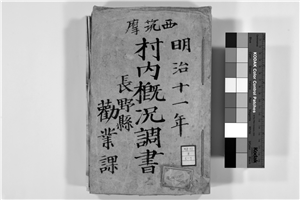 明治十一年
西筑摩
村内概況調書
長野縣
勸業課
KODAK Color Control Patches
Kodak